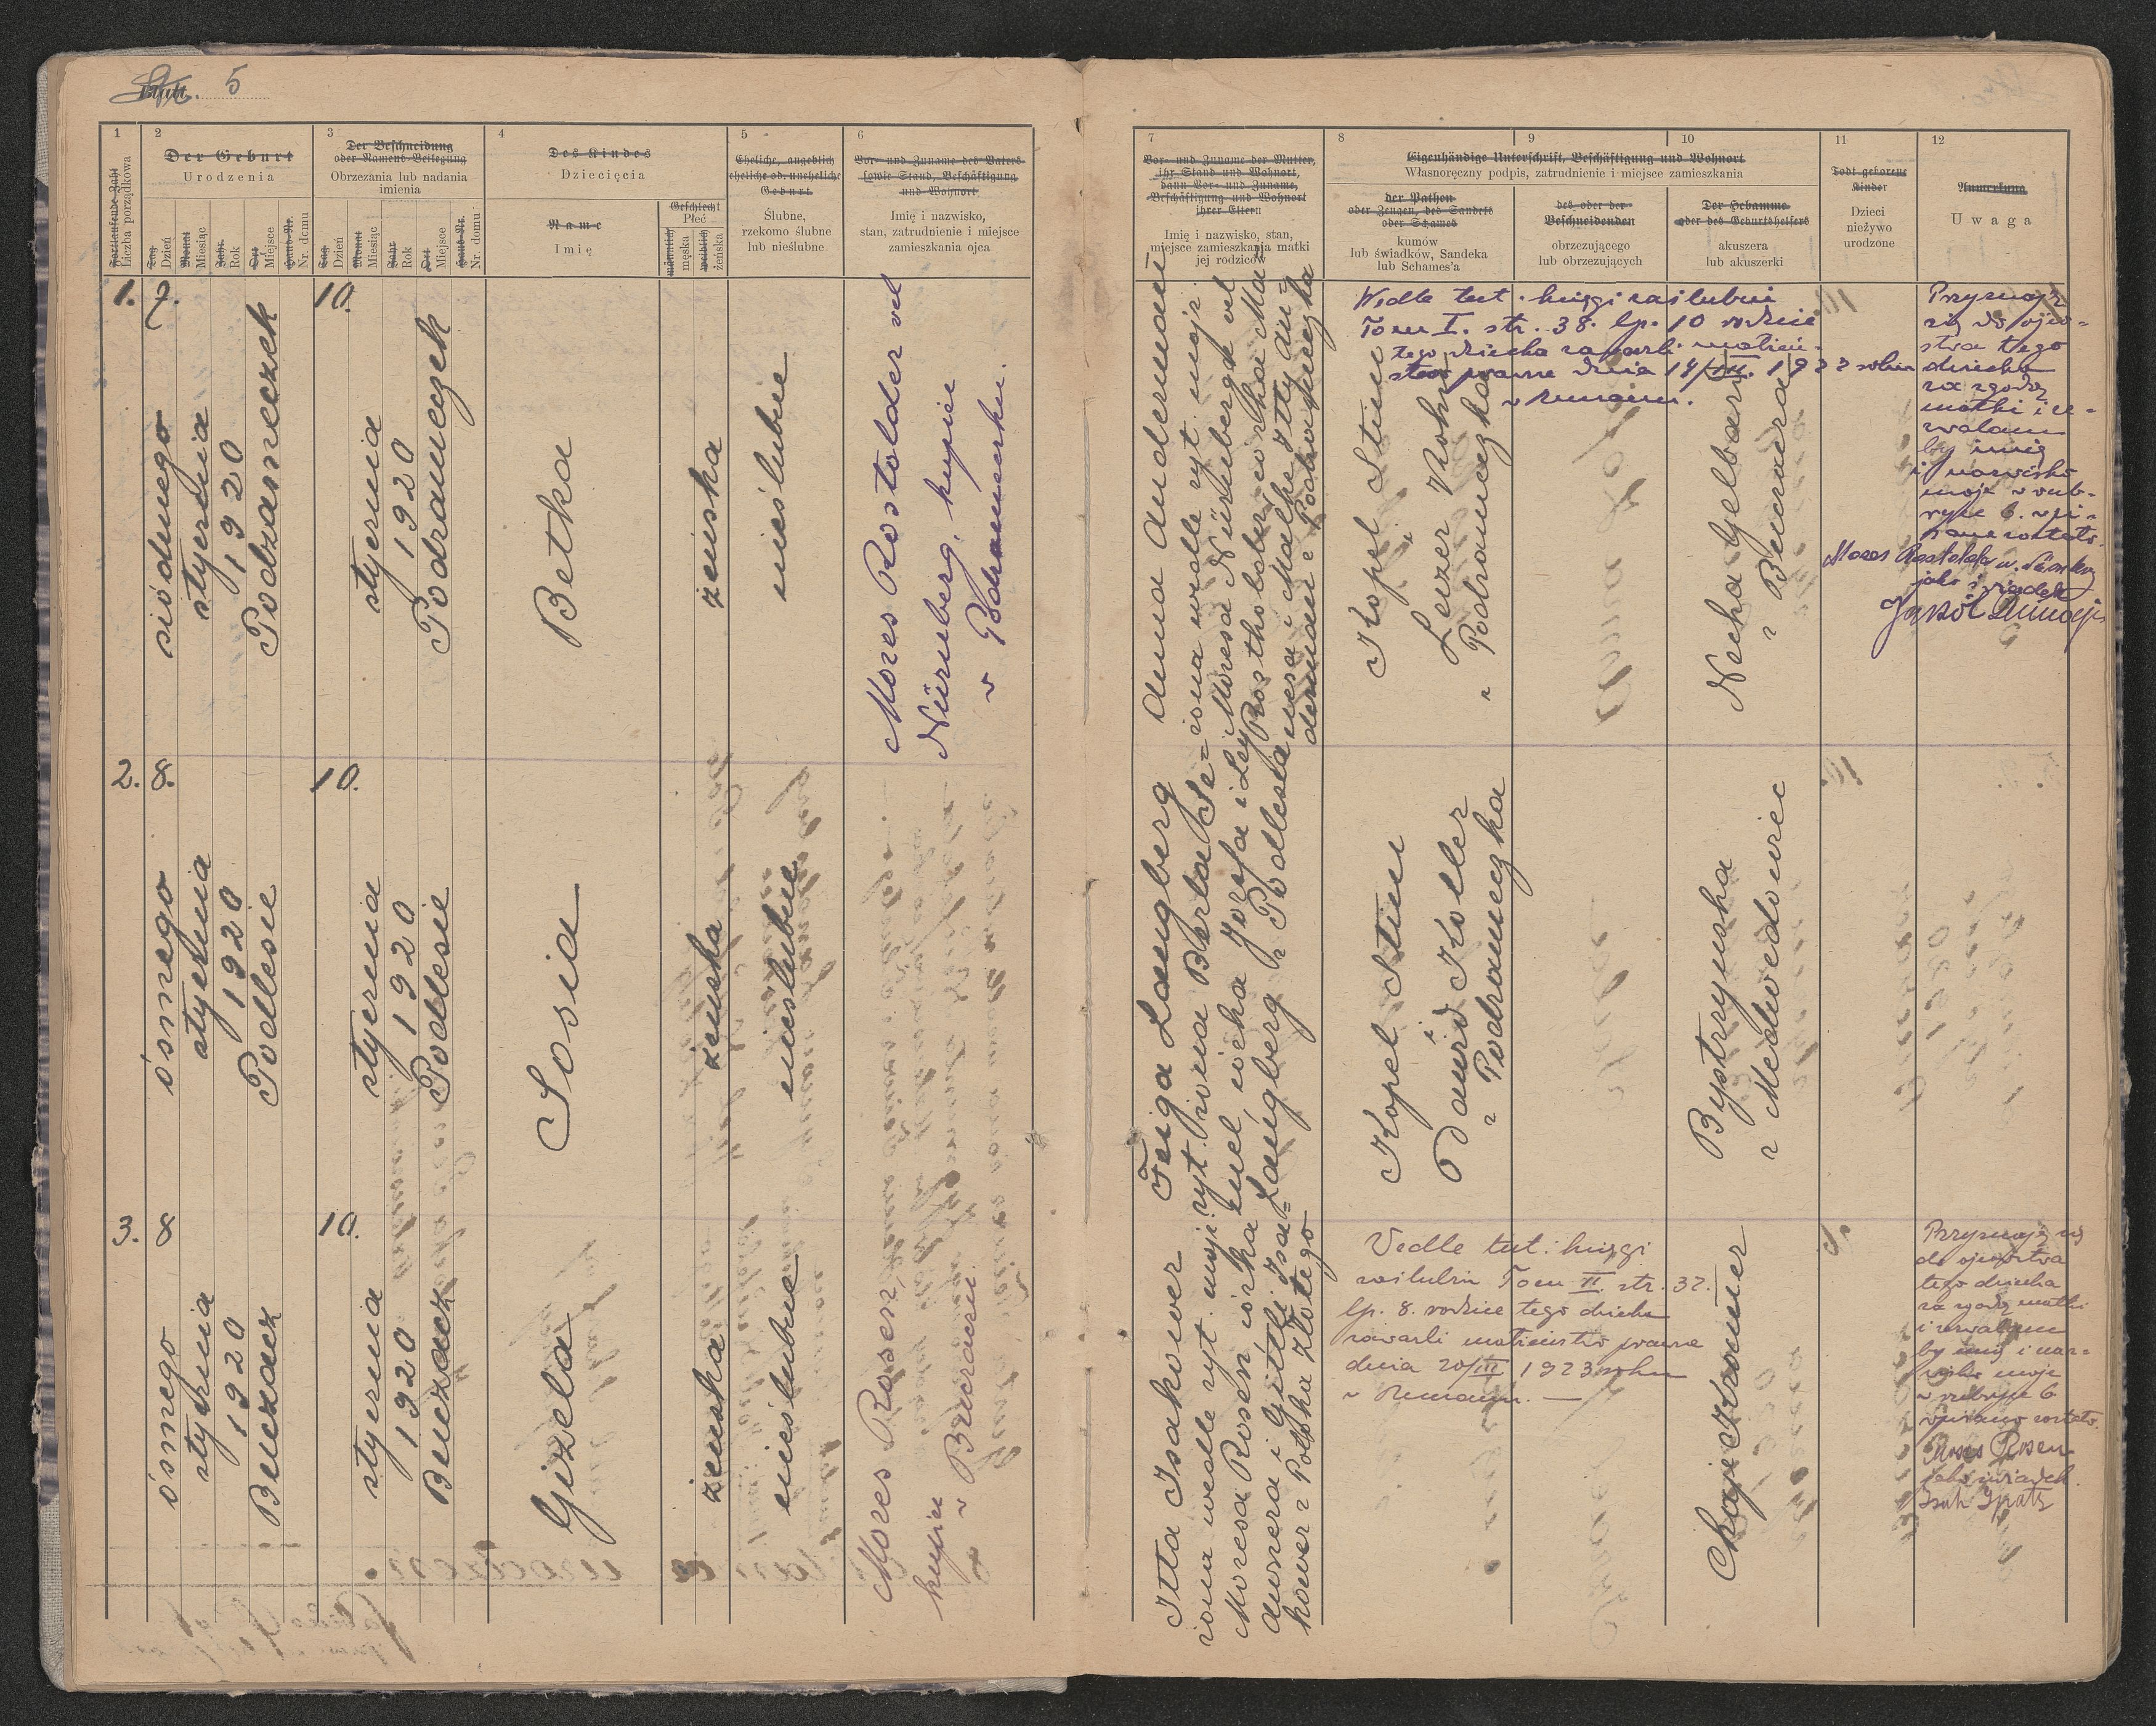 5
1
2
3
4
5
6
Fortlaufende Zahl
Liczba porządkowa
Der Geburt
Urodzenia
Der Beschneidung
oder Namens-Beilegung
Obrzezania lub nadania
imienia
Des Kindes
Dziecięcia
Eheliche, angeblich
eheliche od. uneheliche
Geburt
Ślubne,
rzekomo ślubne
lub nieślubne
Vor- und Zuname des Vaters
sowie Stand, Beschäftigung
und Wohnort
Imię i nazwisko,
stan, zatrudnienie i miejsce
zamieszkania ojca
Tag
Dzień
Monat
Miesiąc
Jahr
Rok
Ort
Miejsce
Haus-Nr.
Nr. domu
Tag
Dzień
Monat
Miesiąc
Jahr
Rok
Ort
Miejsce
Haus-Nr.
Nr. domu
Name
Imię
Geschlecht
Płeć
männlich
męska
weiblich
żeńska
1.
7.
siódmego
stycznia
1920
Podzameczek
10.
stycznia
1920
Podzameczek
Betka
żeńska
nieślubne
Mozes Rostolder vel
Nürnberg, kupiec
w Podzameczku.
2.
8.
ósmego
stycznia
1920
Podlesie
10.
stycznia
1920
Podlesie
Sosia
żeńska
nieślubne
3.
8
ósmego
stycznia
1920
Buczacz
10.
stycznia
1920
Buczacz
Gizela
żeńska
nieślubne
Mozes Rosen
kupiec
w Buczaczu
7
8
9
10
11
12
Vor- und Zuname der Mutter,
ihr Stand und Wohnort,
dann Vor- und Zuname,
Beschäftigung und Wohnort
ihrer Eltern
Imię i nazwisko, stan,
miejsce zamieszkania matki
jej rodziców
Eigenhändige Unterschrift, Beschäftigung und Wohnort
Własnoręczny podpis, zatrudnienie i miejsce zamieszkania
der Pathen
oder Zeugen, des Sandeks
oder Schames
kumów
lub świadków, Sandeka
lub Schames'a
des oder der
Beschneidenden
obrzezującego
lub obrzezujących
Der Hebamme
oder des Geburtshelfers
akuszera
lub akuszerki
Todt geborene
Kinder
Dzieci
nieżywo
urodzone
Anmerkung
Uwaga
Anna Anderman
żona wedle ryt. mojż.
Mozesa Nürnberga vel
Rostholder, córka Ma-
nesa i Malke Itty An-
derman z Podzameczka
Wedle tut. księgi zaślubin
Tom I. str. 38. lp. 10 rodzice
tego dziecka zawarli małżeń-
stwo prawne dnia
w Buczaczu.
Kopel Stern
i
Leizer Kohn
z Podzameczka
Necha Gelbart
z Buczacza
Przyznaję
się do ojco-
stwa tego
dziecka
za zgodą
matki i ze-
zwalam
by imię
i nazwisko
moje w rub-
ryce 6. wpi-
sane zostało.
jako świadek
Feiga Langberg
Józefa i Ley
Langberg z Podlesia
Kopel Stern
i
Dawid Koller
z Podzameczka
Bystrzyńska
z Medwedowiec
Itta Isakower
żona wedle ryt. mojż.
Mozesa Rosen córka
Awnera i Gittli Isa-
kower z Potoka Złotego
Wedle tut. księgi
zaślubin Tom II. str. 32.
lp. 8. rodzice tego dziecka
zawarli małżeństwo prawne
dnia 20/III 1923 roku
w Buczaczu.
Chaje Kramer
Przyznaję się
do ojcostwa
tego dziecka
za zgodą matki
i zezwalam
by imię i naz-
wisko moje
w rubryce 6
wpisane zostało.
Moses Rosen
jako świadek